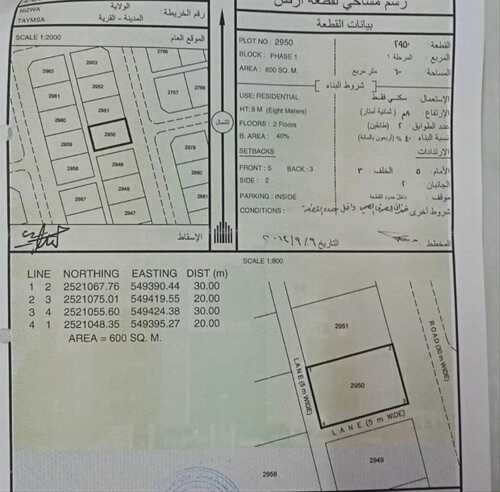 رسم مساحي لقطعة أرض
NIZWA
TAYMSA
الولاية
المدينة - القرية
رقم الخريطة
SCALE 1:2000
الموقع العام
بيانات القطعة
PLOT NO : 2950
القطعة ٢٩٥٠
BLOCK : PHASE 1
المربع المرحلة ١
AREA : 600 SQ. M.
المساحة متر مربع
شروط البناء
USE: RESIDENTIAL
الإستعمال: سكني فقط
HT: 8 M (Eight Meters)
الإرتفاع ٨م (ثمانية أمتار)
FLOORS : 2 Floors
عدد الطوابق ٢ (طابقين)
B. AREA : 40%
نسبة البناء ٤٠ % (أربعون بالمائة)
SETBACKS
الإرتدادات
FRONT : 5 BACK : 3
الأمام: ٥ الخلف ٣
SIDE : 2
الجانبان ٢
PARKING : INSIDE
موقف: داخل حدود القطعة
CONDITIONS :
شروط أخرى
المخطط
التاريخ
الشمال
الإسقاط
2962
2961
2960
2959
2953
2951
2950
2949
2947
2767
2766
SCALE 1:800
LINE NORTHING EASTING DIST (m)
1 2 2521067.76 549390.44 30.00
2 3 2521075.01 549419.55 20.00
3 4 2521055.60 549424.38 30.00
4 1 2521048.35 549395.27 20.00
AREA = 600 SQ. M.
2951
2950
2949
2958
LANE (5 m WIDE)
LANE (5 m WIDE)
ROAD (30 m WIDE)